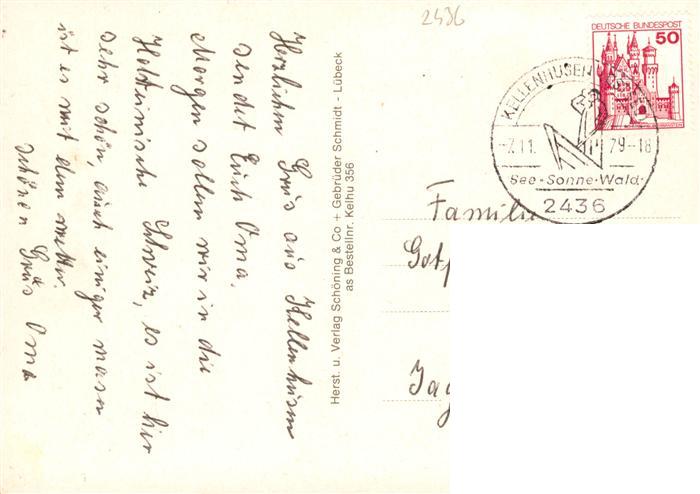 2436
DEUTSCHE BUNDESPOST
50
KELLENHUSEN
-7.11. 79-18
See·Sonne·Wald·
2436
Herzlichen Gruß aus Kellenhusen
sendet Euch Oma.
Morgen sollen wir in die
Holsteinische Schweiz, es ist hier
sehr schön, auch einiger masen
ist es mit dem wetter.
schönen Gruß Oma
Herst. u. Verlag Schöning & Co + Gebrüder Schmidt - Lübeck
as Bestellnr. Kelhu 356
Familie